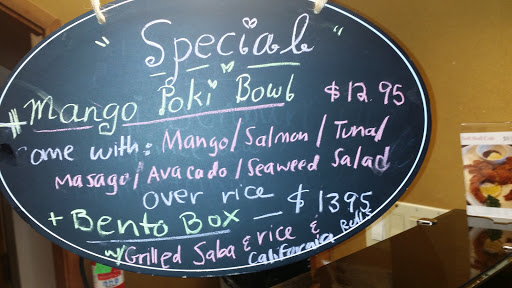 "Special
# Mango Poki Bowl $12.95
ome with: Mango/Salmon/Tuna/
Masago/Avocado/Seaweed Salad
over rice
+ Bento Box — $1395
w/Grilled Saba & rice &
California Rolls